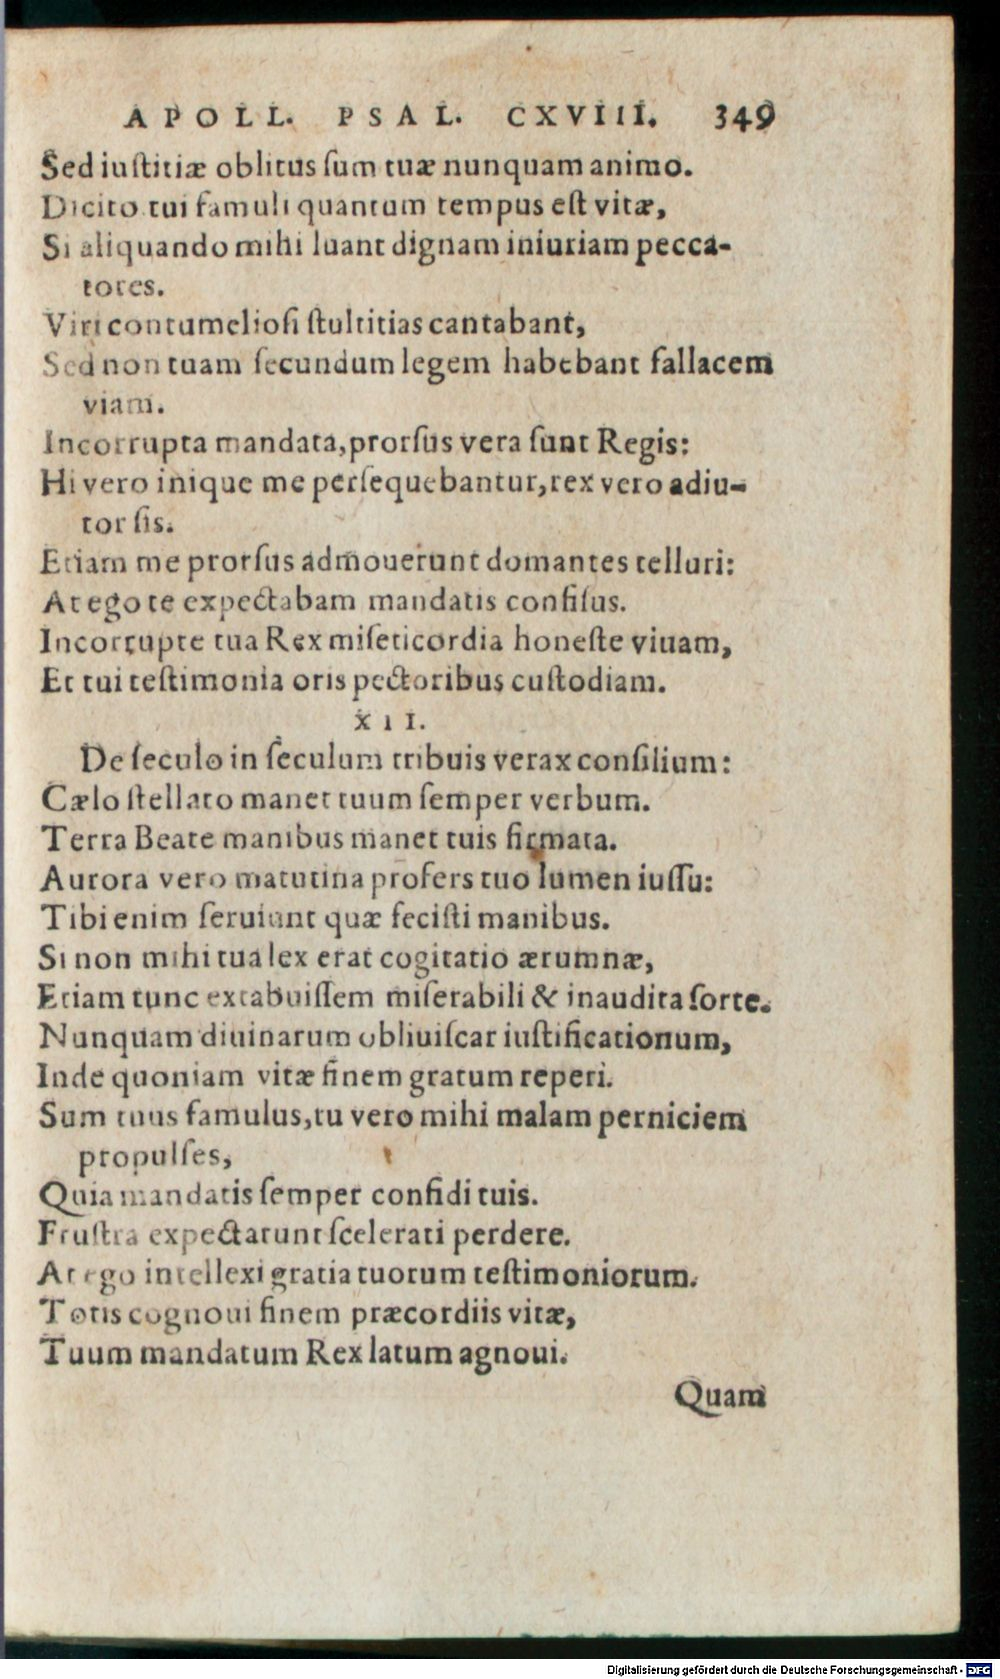 APOLL. PSAL. CXVIII. 349
Sed iuſtitiæ oblitus ſum tuæ nunquam animo.
Dicito tui famuli quantum tempus eſt vitæ,
Si aliquando mihi luant dignam iniuriam pecca-
tores.
Viri contumelioſi ſtultitias cantabant,
Sed non tuam ſecundum legem habebant fallacem
viam.
Incorrupta mandata, prorſus vera ſunt Regis:
Hi vero inique me perſequebantur, rex vero adiu-
tor ſis.
Etiam me prorſus admouerunt domantes telluri:
At ego te expectabam mandatis confiſus.
Incorrupte tua Rex miſericordia honeſte viuam,
Et tui teſtimonia oris pectoribus cuſtodiam.
XII.
De ſeculo in ſeculum tribuis verax conſilium:
Cælo ſtellato manet tuum ſemper verbum.
Terra Beate manibus manet tuis firmata.
Aurora vero matutina profers tuo lumen iuſſu:
Tibi enim ſeruiunt quæ feciſti manibus.
Si non mihi tua lex erat cogitatio ærumnæ,
Etiam tunc extabuiſſem miſerabili & inaudita ſorte.
Nunquam diuinarum obliuiſcar iuſtificationum,
Inde quoniam vitæ finem gratum reperi.
Sum tuus famulus, tu vero mihi malam perniciem
propulſes,
Quia mandatis ſemper confidi tuis.
Fruſtra expectarunt ſcelerati perdere.
At ego intellexi gratia tuorum teſtimoniorum.
Totis cognoui finem præcordiis vitæ,
Tuum mandatum Rex latum agnoui.
Quam
Digitalisierung gefördert durch die Deutsche Forschungsgemeinschaft - DFG